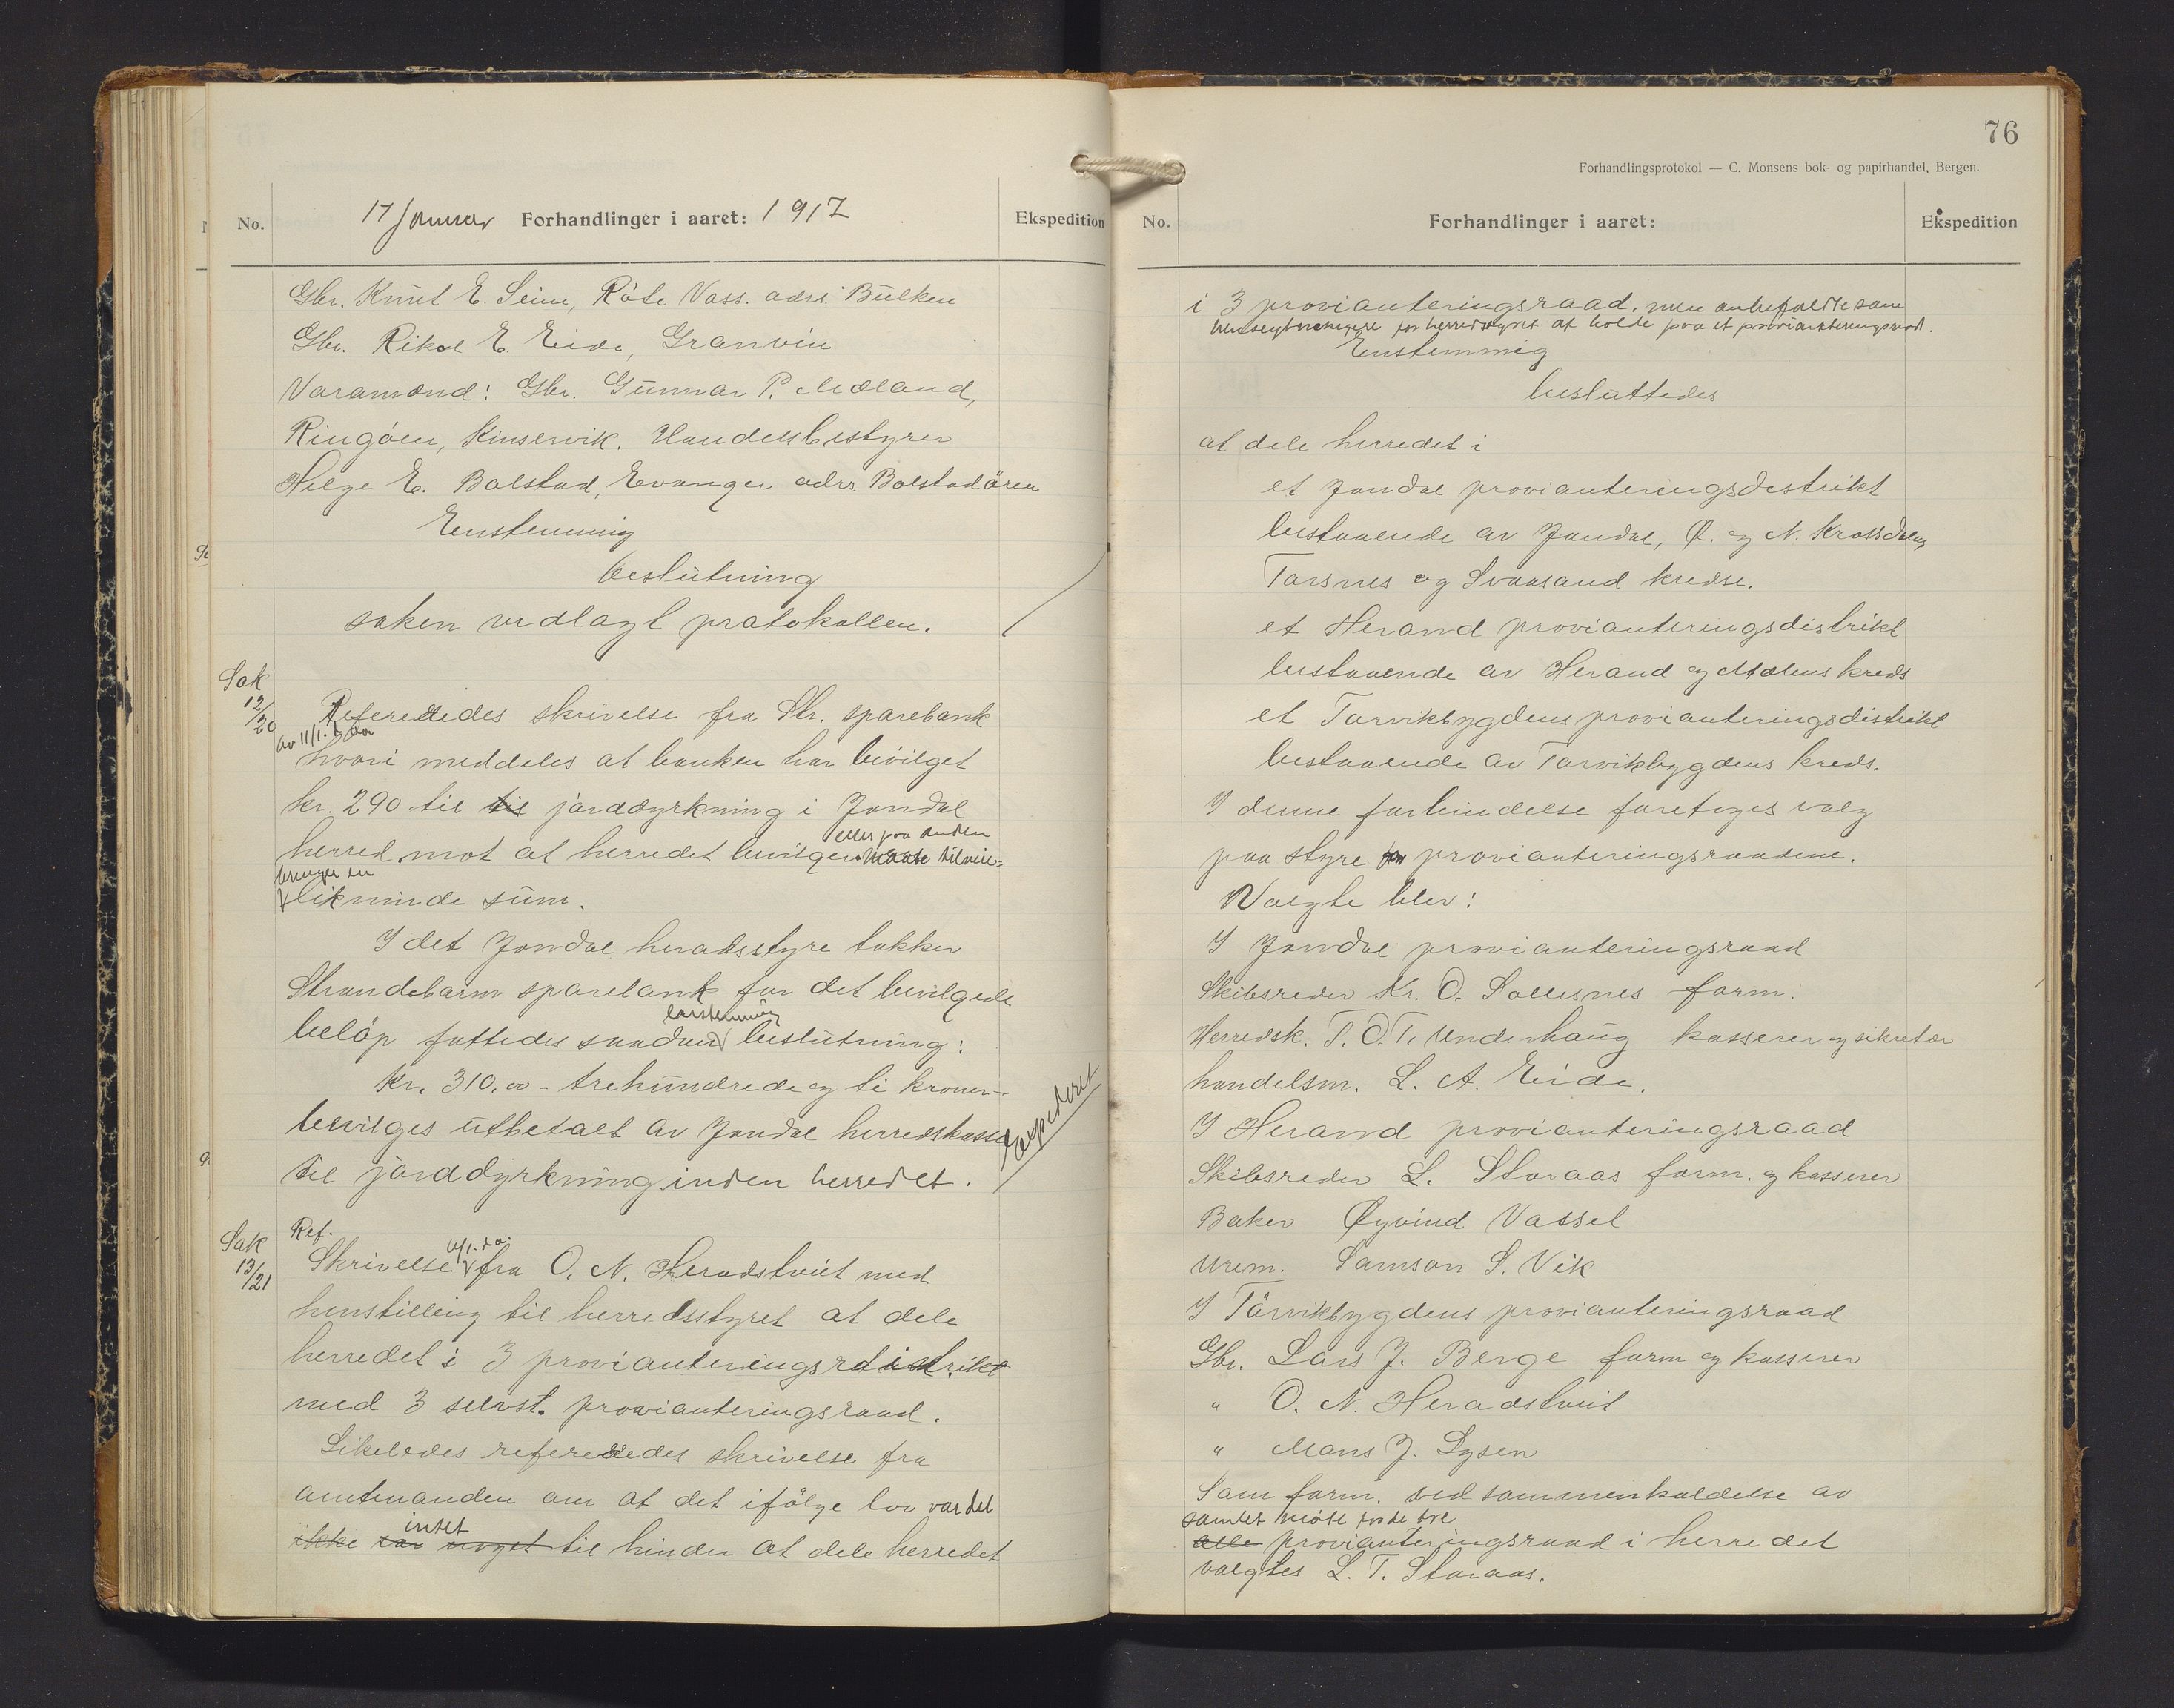 No.
17 Januar Forhandlinger i aaret: 1917
Ekspedition
Gbr. Knut E. Seim, Røte Voss. adrs. Bulken
Gbr. Rikol E. Eide, Granvin
Varamænd: Gbr. Gunnar P. Mæland,
Ringøen, Kinservik. Handelsbestyrer
Helge E. Bolstad, Evanger adrs Bolstadören
Enstemmig
beslutning
saken vedlagt protokollen.
Sak
12/20
Refereredes skrivelse fra Str. sparebank
av 11/1. d. aa
hvori meddeles at banken har bevilget
kr. 290 til til jorddyrkning i Jondal
eller paa anden
herred mot at herredet bevilger maate tilveie-
bringer en
likninde sum.
I det Jondal heradsstyre takker
Strandebarm sparebank for det bevilgede
enstemmig
beløp fattedes saadan beslutning:
Kr. 310.00 - trehundrede og ti kroner -
bevilges utbetalt av Jondal herredskasse
til jorddyrkning inden herredet.
Expederet
Sak
13/21
Ref.
Skrivelse fra O. N. Heradstveit med
henstilling til herredsstyret at dele
herredet i 3 provianteringsrdistrikt
med 3 selvst. provianteringsraad.
Likeledes refereredes skrivelse fra
amtmanden om at det ifølge lov var det
intet
ikke var noget til hinder at dele herredet
76
Forhandlingsprotokol — C. Monsens bok- og papirhandel, Bergen.
No.
Forhandlinger i aaret:
Ekspedition
i 3 provianteringsraad. men anbefaldte som
for herredsstyret at holde paa et provianteringsraad.
Enstemmig
besluttedes
at dele herredet i
et Jondal provianteringsdistrikt
bestaaende av Jondal, Ø. og N. Krossdalens
Torsnes og Svaasand kredse.
et Herand provianteringsdistrikt
bestaaende av Herand og Mølens kreds
et Torvikbygdens provianteringsdistrikt
bestaaende av Torvikbygdens kreds.
I denne forbindelse foretoges valg
paa styre for provianteringsraadene.
Valgte blev:
I Jondal provianteringsraad
Skibsreder Kr. O. Sollesnes form.
Herredsk. T. O. T. Underhaug kasserer og sikretær
handelsm. L. A. Eide.
I Herand provianteringsraad
Skibsreder L. Storaas form. og kasserer
Baker Øyvind Vassel
Urem. Samson S. Vik
I Törvikbygdens provianteringsraad
Gbr. Lars J. Berge form og kasserer
" O. N. Heradstveit
" Mons J. Lysen
Som form. ved sammenkaldelse av
samlet møte for de tre
alle provianteringsraad i herredet
valgtes L. T. Storaas.